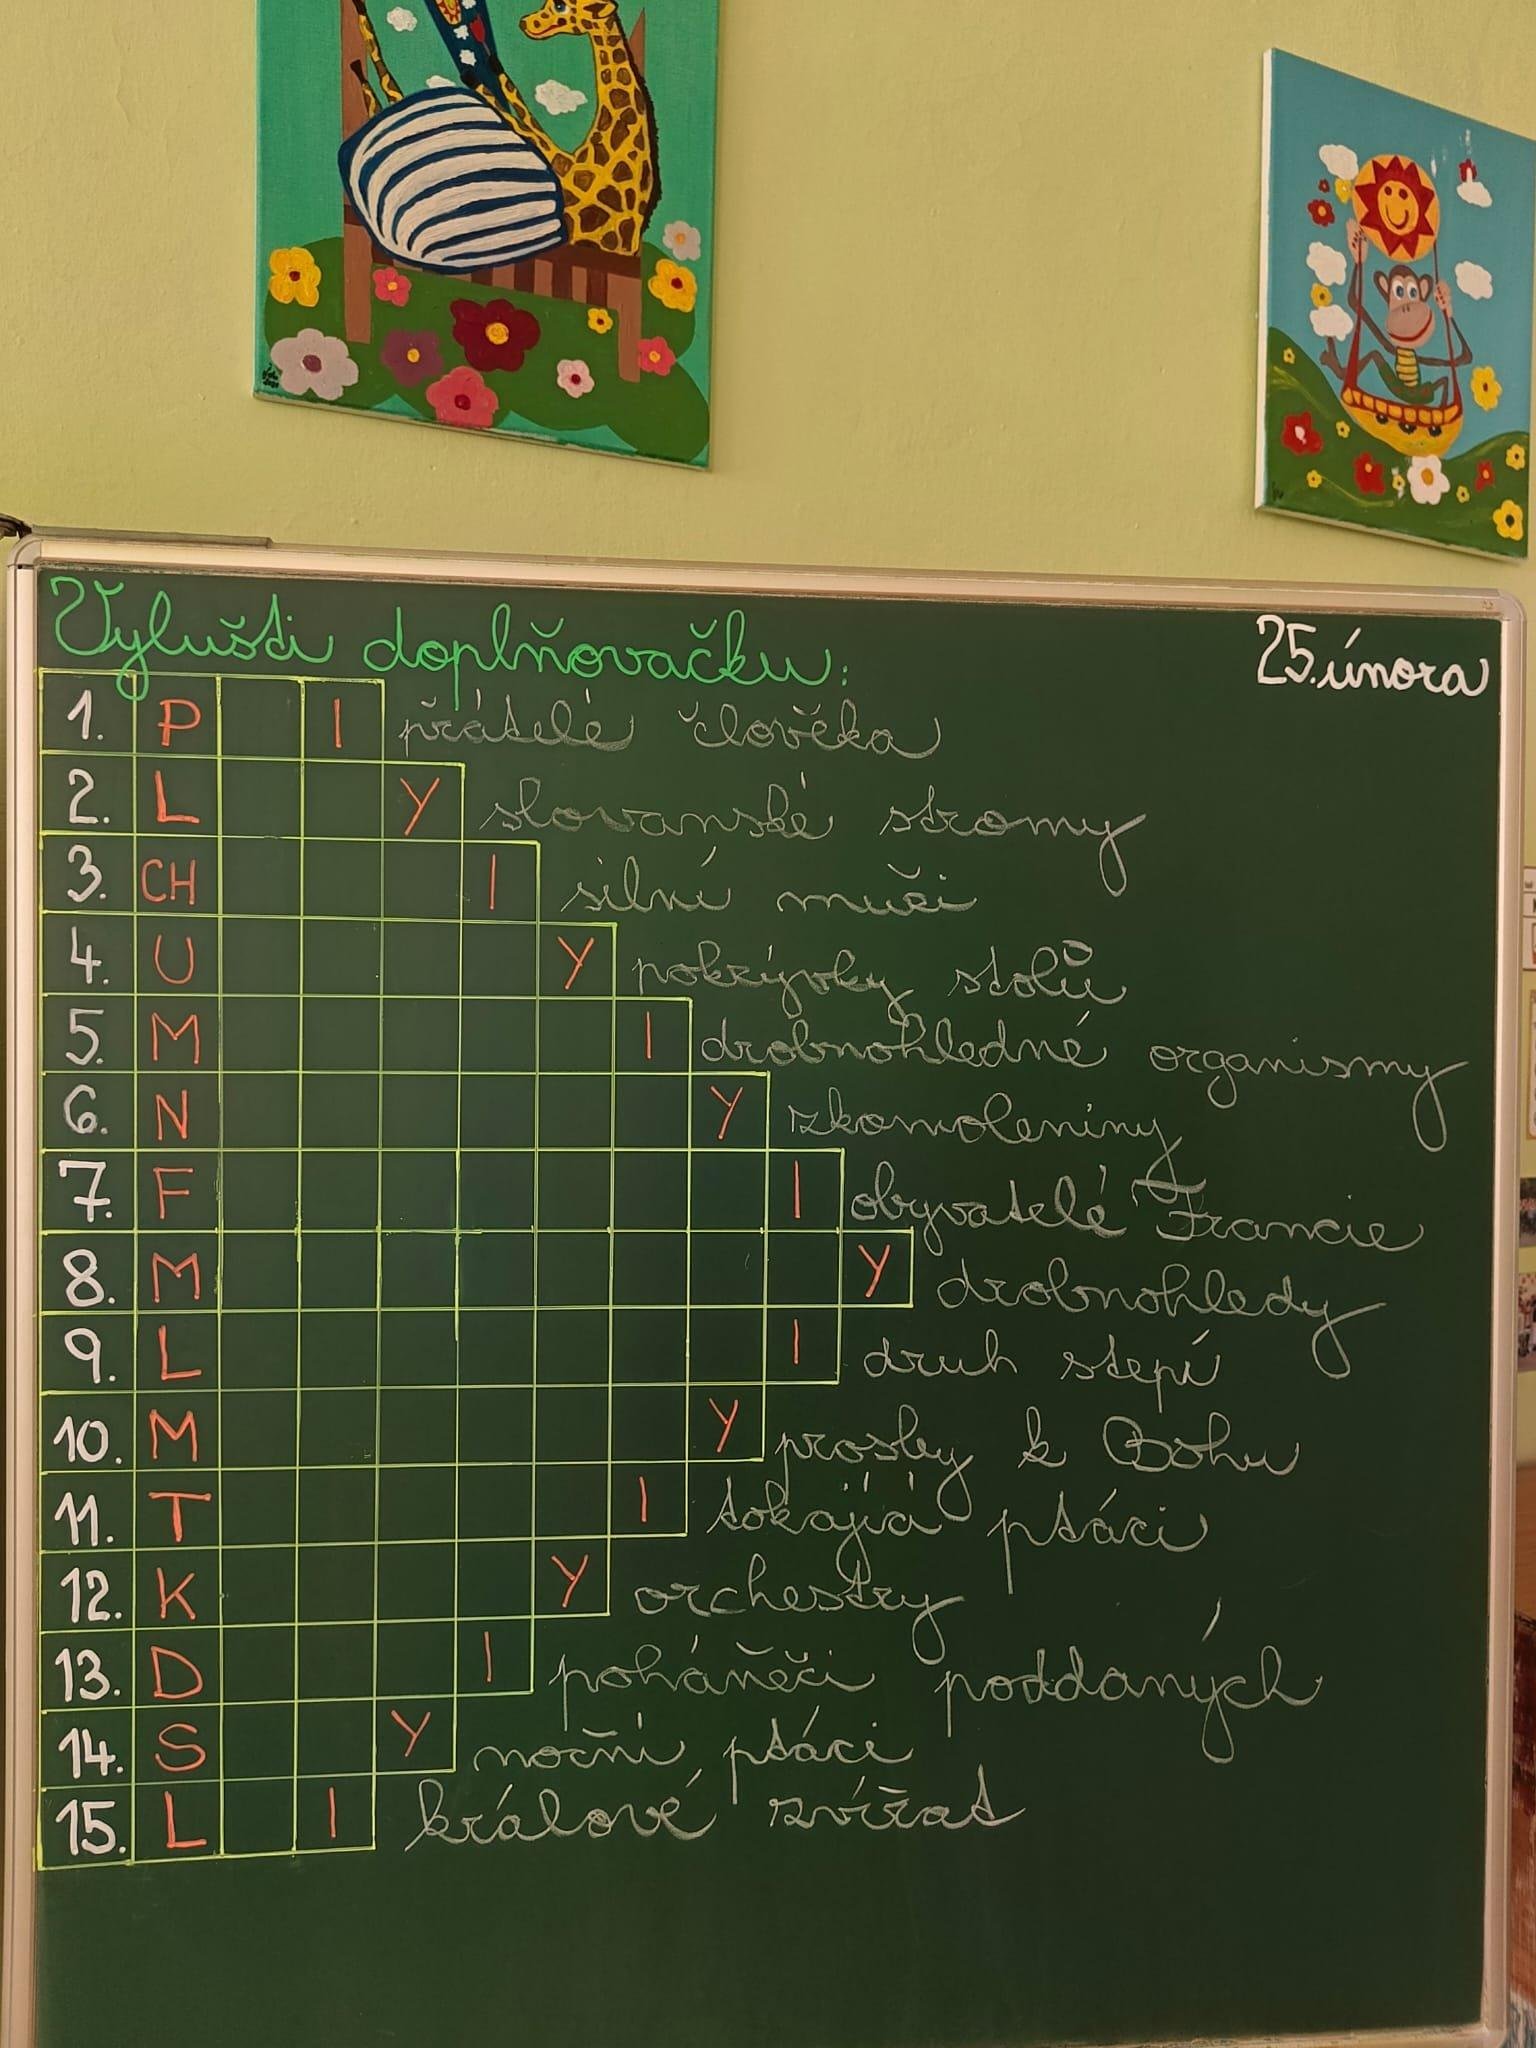 Vylušti doplňovačku:
25. února
1. P I přátelé člověka
2. L Y slovanské stromy
3. CH I silní muži
4. U Y pokrývky stolů
5. M I drobnohledné organismy
6. N Y zkomoleniny
7. F I obyvatelé Francie
8. M Y drobnohledy
9. L I druh stepí
10. M Y prosby k Bohu
11. T I tokající ptáci
12. K Y orchestry
13. D I poháněči poddaných
14. S Y noční ptáci
15. L I králové zvířat